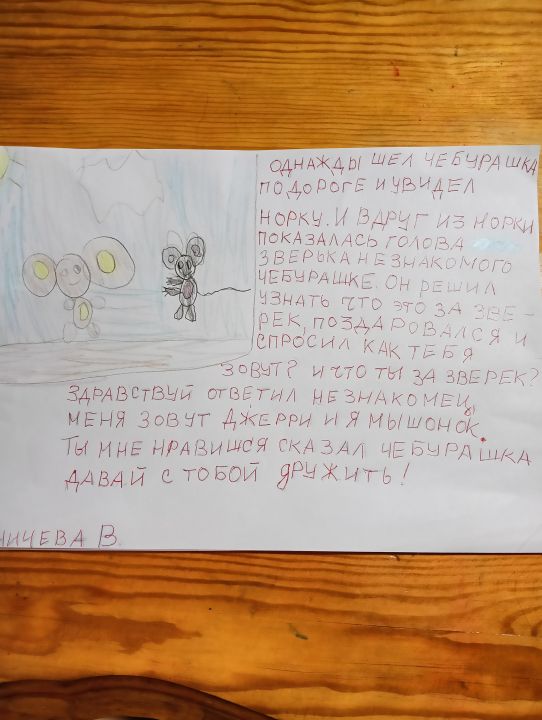 ОДНАЖДЫ ШЕЛ ЧЕБУРАШКА
ПО ДОРОГЕ И УВИДЕЛ
НОРКУ. И ВДРУГ ИЗ НОРКИ
ПОКАЗАЛАСЬ ГОЛОВА
ЗВЕРЬКА НЕЗНАКОМОГО
ЧЕБУРАШКЕ. ОН РЕШИЛ
УЗНАТЬ ЧТО ЭТО ЗА ЗВЕ-
РЕК, ПОЗДАРОВАЛСЯ И
СПРОСИЛ КАК ТЕБЯ
ЗОВУТ? И ЧТО ТЫ ЗА ЗВЕРЕК?
ЗДРАВСТВУЙ ОТВЕТИЛ НЕЗНАКОМЕЦ,
МЕНЯ ЗОВУТ ДЖЕРРИ И Я МЫШОНОК.
ТЫ МНЕ НРАВИШСЯ СКАЗАЛ ЧЕБУРАШКА
ДАВАЙ С ТОБОЙ ДРУЖИТЬ!
НИЧЕВА В.